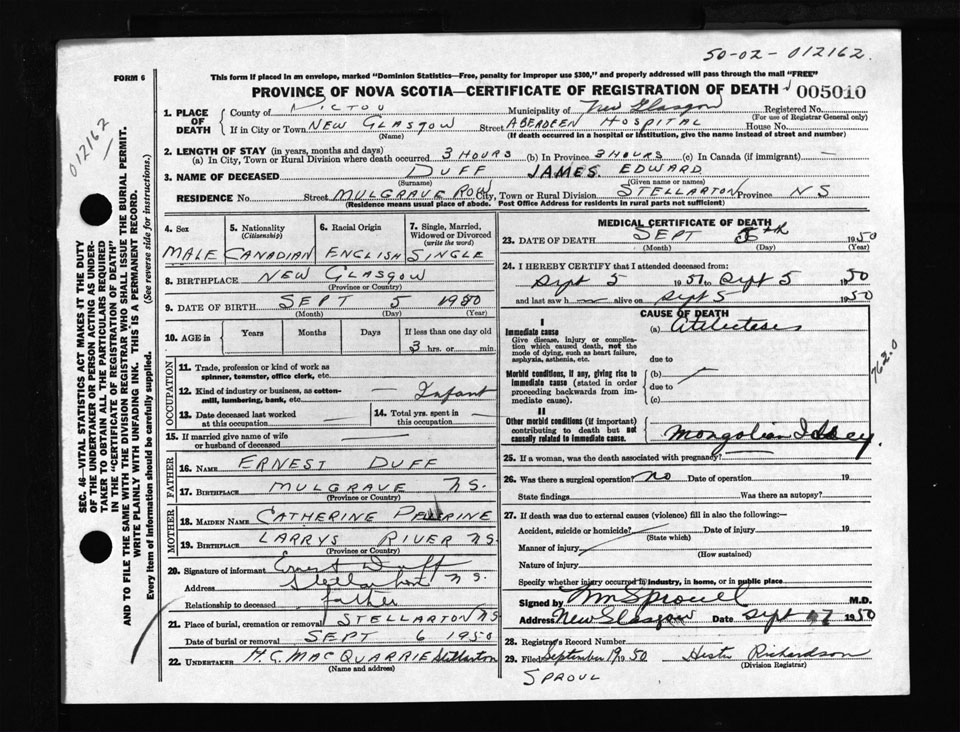 50-02-012162.
FORM 6
This form if placed in an envelope, marked "Dominion Statistics—Free, penalty for improper use $300," and properly addressed will pass through the mail "FREE"
PROVINCE OF NOVA SCOTIA—CERTIFICATE OF REGISTRATION OF DEATH 005010
012162
SEC. 46—VITAL STATISTICS ACT MAKES IT THE DUTY
OF THE UNDERTAKER OR PERSON ACTING AS UNDER-
TAKER TO OBTAIN ALL THE PARTICULARS REQUIRED
IN THE "CERTIFICATE OF REGISTRATION OF DEATH"
AND TO FILE THE SAME WITH THE DIVISION REGISTRAR WHO SHALL ISSUE THE BURIAL PERMIT.
WRITE PLAINLY WITH UNFADING INK. THIS IS A PERMANENT RECORD.
Every item of information should be carefully supplied. (See reverse side for instructions.)
1. PLACE OF DEATH County of PICTOU Municipality of New Glasgow Registered No.
(For use of Registrar General only)
If in City or Town NEW GLASGOW Street ABERDEEN HOSPITAL House No.
(Name) (If death occurred in a hospital or institution, give the name instead of street and number)
2. LENGTH OF STAY (in years, months and days)
(a) In City, Town or Rural Division where death occurred 3 HOURS (b) In Province 3 HOURS (c) In Canada (if immigrant) —
3. NAME OF DECEASED DUFF JAMES EDWARD
(Surname) (Given name or names)
RESIDENCE No. Street MULGRAVE ROW City, Town or Rural Division STELLARTON Province NS
(Residence means usual place of abode. Post Office Address for residents in rural parts not sufficient)
4. Sex 5. Nationality (Citizenship) 6. Racial Origin 7. Single, Married, Widowed or Divorced (write the word)
MALE CANADIAN ENGLISH SINGLE
8. BIRTHPLACE NEW GLASGOW
(Province or Country)
9. DATE OF BIRTH SEPT 5 1950
(Month) (Day) (Year)
10. AGE in Years Months Days If less than one day old
3 hrs. or min.
OCCUPATION
11. Trade, profession or kind of work as spinner, teamster, office clerk, etc. —
12. Kind of industry or business, as cotton-mill, lumbering, bank, etc. — Infant
13. Date deceased last worked at this occupation — 14. Total yrs. spent in this occupation —
15. If married give name of wife or husband of deceased —
FATHER
16. NAME ERNEST DUFF
17. BIRTHPLACE MULGRAVE N.S.
(Province or Country)
MOTHER
18. MAIDEN NAME CATHERINE
19. BIRTHPLACE LARRYS RIVER N.S.
(Province or Country)
20. Signature of informant Ernest Duff
Address Stellarton N.S.
Relationship to deceased father
21. Place of burial, cremation or removal STELLARTON N.S.
Date of burial or removal SEPT 6 1950
22. UNDERTAKER H.C. MACQUARRIE Stellarton
(Name and address)
MEDICAL CERTIFICATE OF DEATH
23. DATE OF DEATH SEPT 5th 1950
(Month) (Day) (Year)
24. I HEREBY CERTIFY that I attended deceased from:
Sept 5 1950 to Sept 5 1950
and last saw h alive on Sept 5 1950
CAUSE OF DEATH
I
Immediate cause (a) Atelectasis
Give disease, injury or complication which caused death, not the mode of dying, such as heart failure, asphyxia, asthenia, etc.
due to
762.0
Morbid conditions, if any, giving rise to immediate cause (stated in order proceeding backwards from immediate cause).
(b)
due to
(c)
II
Other morbid conditions (if important) contributing to death but not causally related to immediate cause.
Mongolian Idiocy.
25. If a woman, was the death associated with pregnancy?
26. Was there a surgical operation? no Date of operation 19
State findings Was there an autopsy?
27. If death was due to external causes (violence) fill in also the following:—
Accident, suicide or homicide? Date of injury 19
(State which)
Manner of injury
(How sustained)
Nature of injury
Specify whether injury occurred in industry, in home, or in public place
Signed by Wm Sproull M.D.
Address New Glasgow Date Sept 7 1950
28. Registrar's Record Number
29. Filed September 19 1950 Hester Richardson
(Division Registrar)
SPROUL